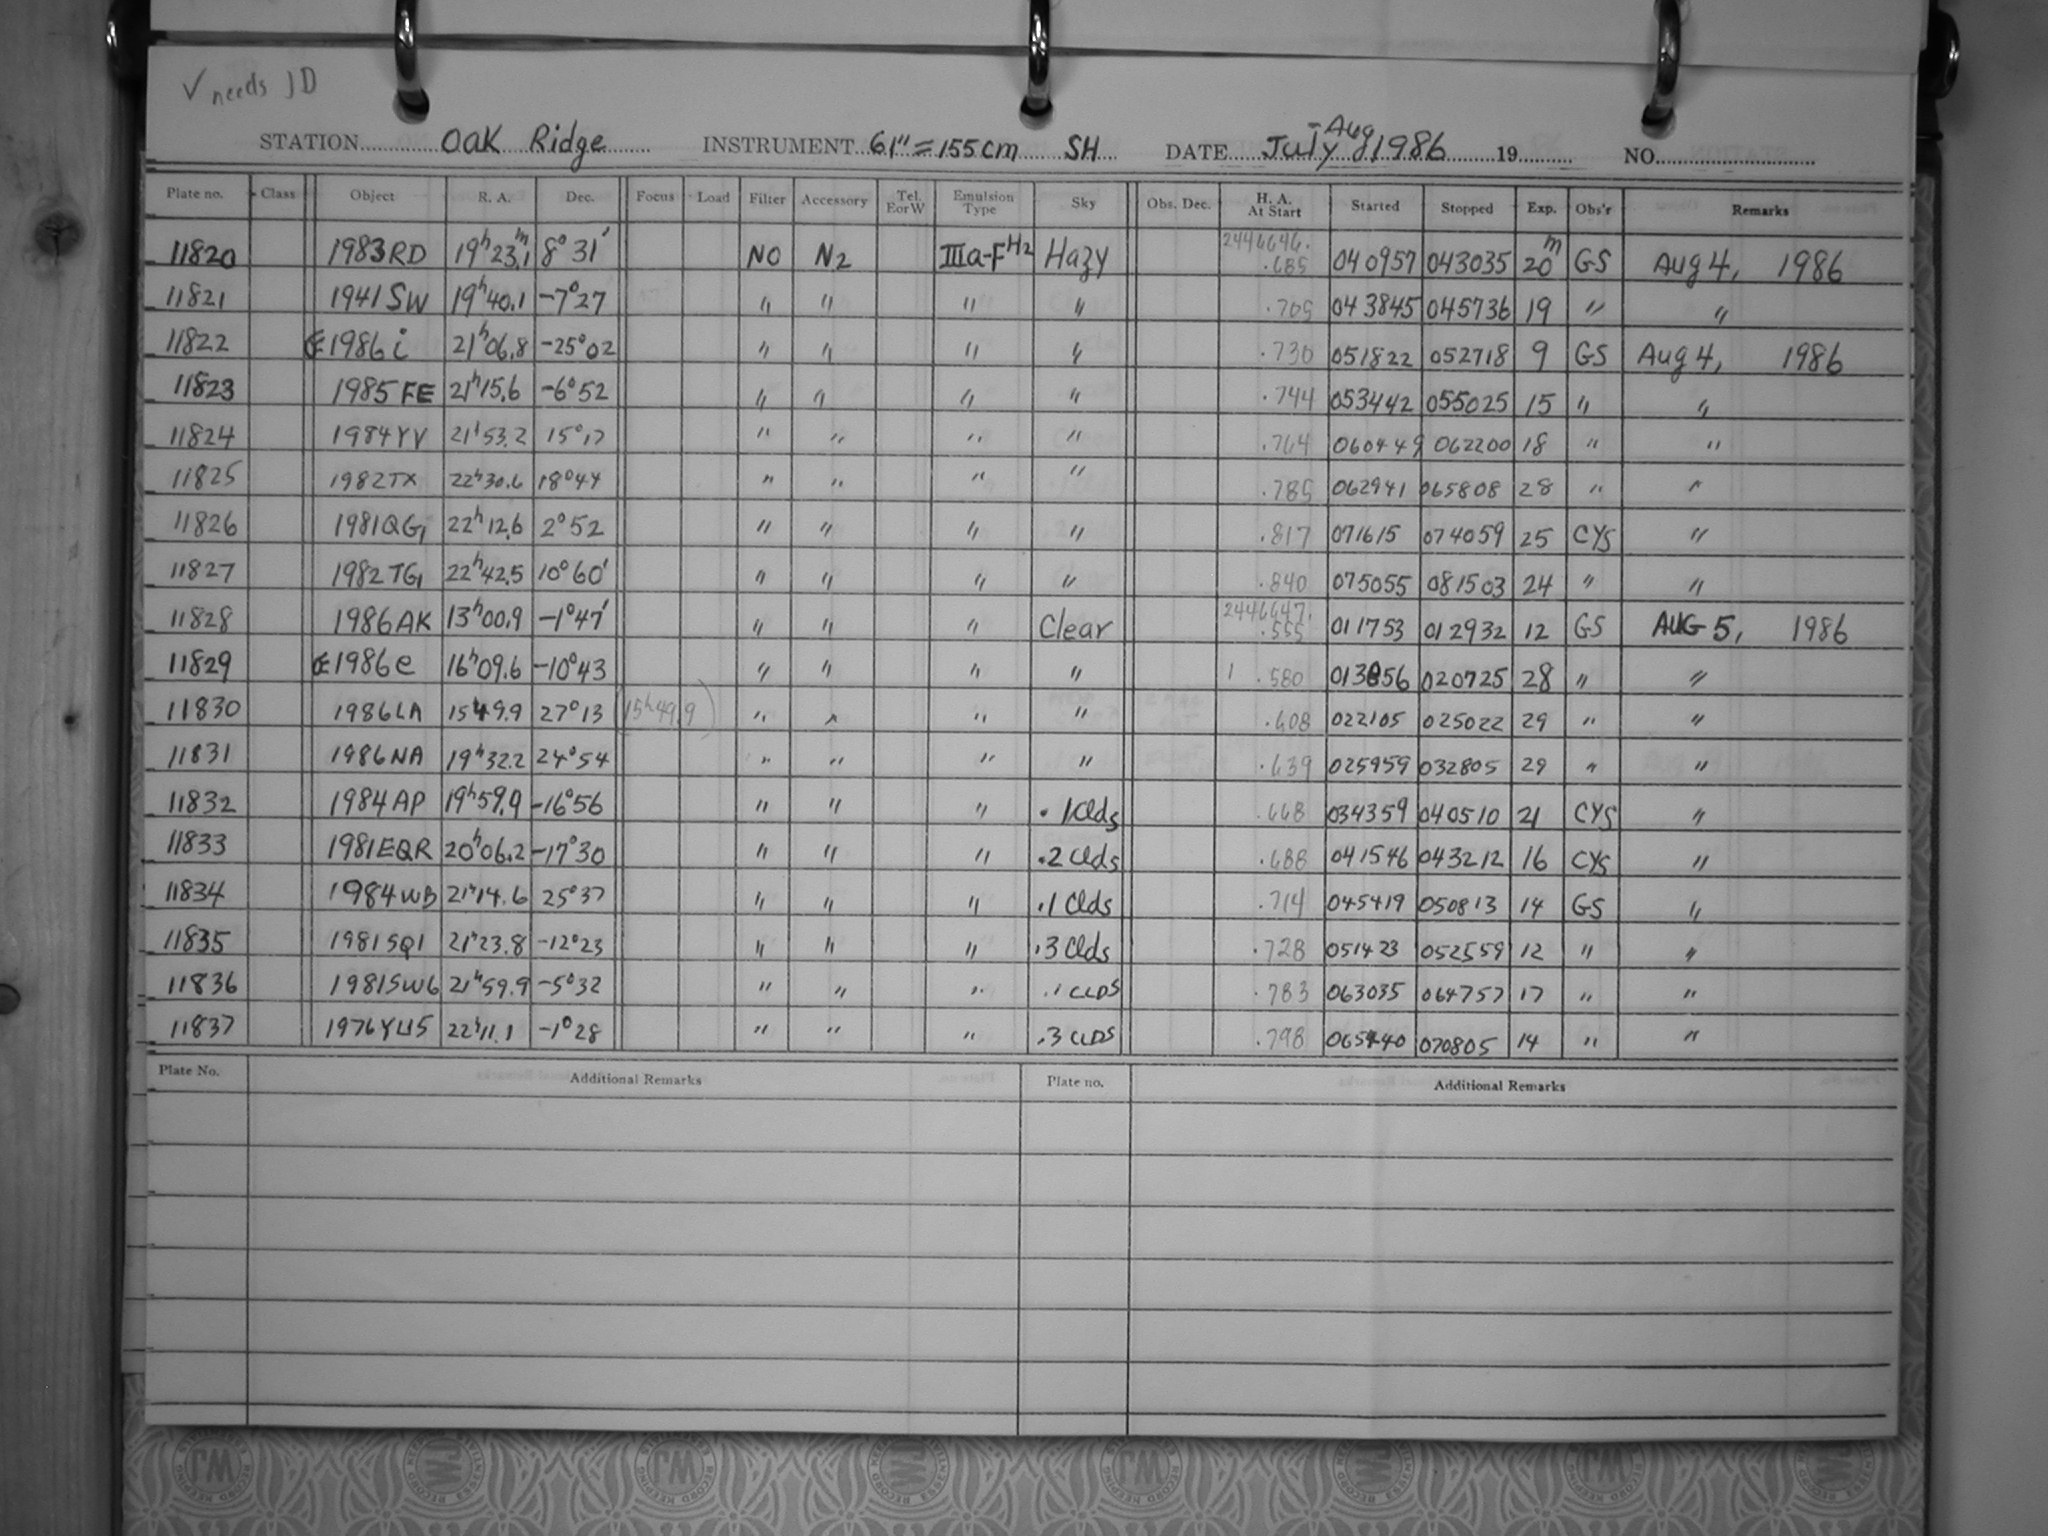 ✓ needs JD
STATION OAK Ridge INSTRUMENT 61" = 155 cm SH DATE July - Aug, 1986 19 NO.
Plate no. Class Object R. A. Dec. Focus Load Filter Accessory Tel. E or W Emulsion Type Sky Obs. Dec. H. A. At Start Started Stopped Exp. Obs'r Remarks
11820 1983RD 19h23.1m 8°31' NO N2 IIIa-F H2 Hazy 2446646. .685 040957 043035 20m GS Aug 4, 1986
11821 1941SW 19h40.1 -7°27 " " " " .705 043845 045736 19 " "
11822 1986i 21h06.8 -25°02 " " " " .730 051822 052718 9 GS Aug 4, 1986
11823 1985FE 21h15.6 -6°52 " " " " .744 053442 055025 15 " "
11824 1984YV 21h53.2 15°17 " " " " .764 060449 062200 18 " "
11825 1982TX 22h30.6 18°44 " " " " .785 062941 065808 28 " "
11826 1981QG1 22h12.6 2°52 " " " " .817 071615 074059 25 CYS "
11827 1982TG1 22h42.5 10°60' " " " " .840 075055 081503 24 " "
11828 1986AK 13h00.9 -1°47' " " " Clear 2446647. .555 011753 012932 12 GS AUG 5, 1986
11829 1986e 16h09.6 -10°43 " " " " .580 013856 020725 28 " "
11830 1986LA 15h49.9 27°13 (15h49.9) " " " " .608 022105 025022 29 " "
11831 1986NA 19h32.2 24°54 " " " " .639 025959 032805 29 " "
11832 1984AP 19h59.9 -16°56 " " " .1 Clds .668 034359 040510 21 CYS "
11833 1981EQR 20h06.2 -17°30 " " " .2 Clds .688 041546 043212 16 CYS "
11834 1984WB 21h14.6 25°37 " " " .1 Clds .714 045419 050813 14 GS "
11835 1981SQ1 21h23.8 -12°23 " " " .3 Clds .728 051423 052559 12 " "
11836 1981SW6 21h59.9 -5°32 " " " .1 CLDS .783 063035 064757 17 " "
11837 1976YU5 22h11.1 -1°28 " " " .3 CLDS .798 065440 070805 14 " "
Plate No. Additional Remarks Plate no. Additional Remarks